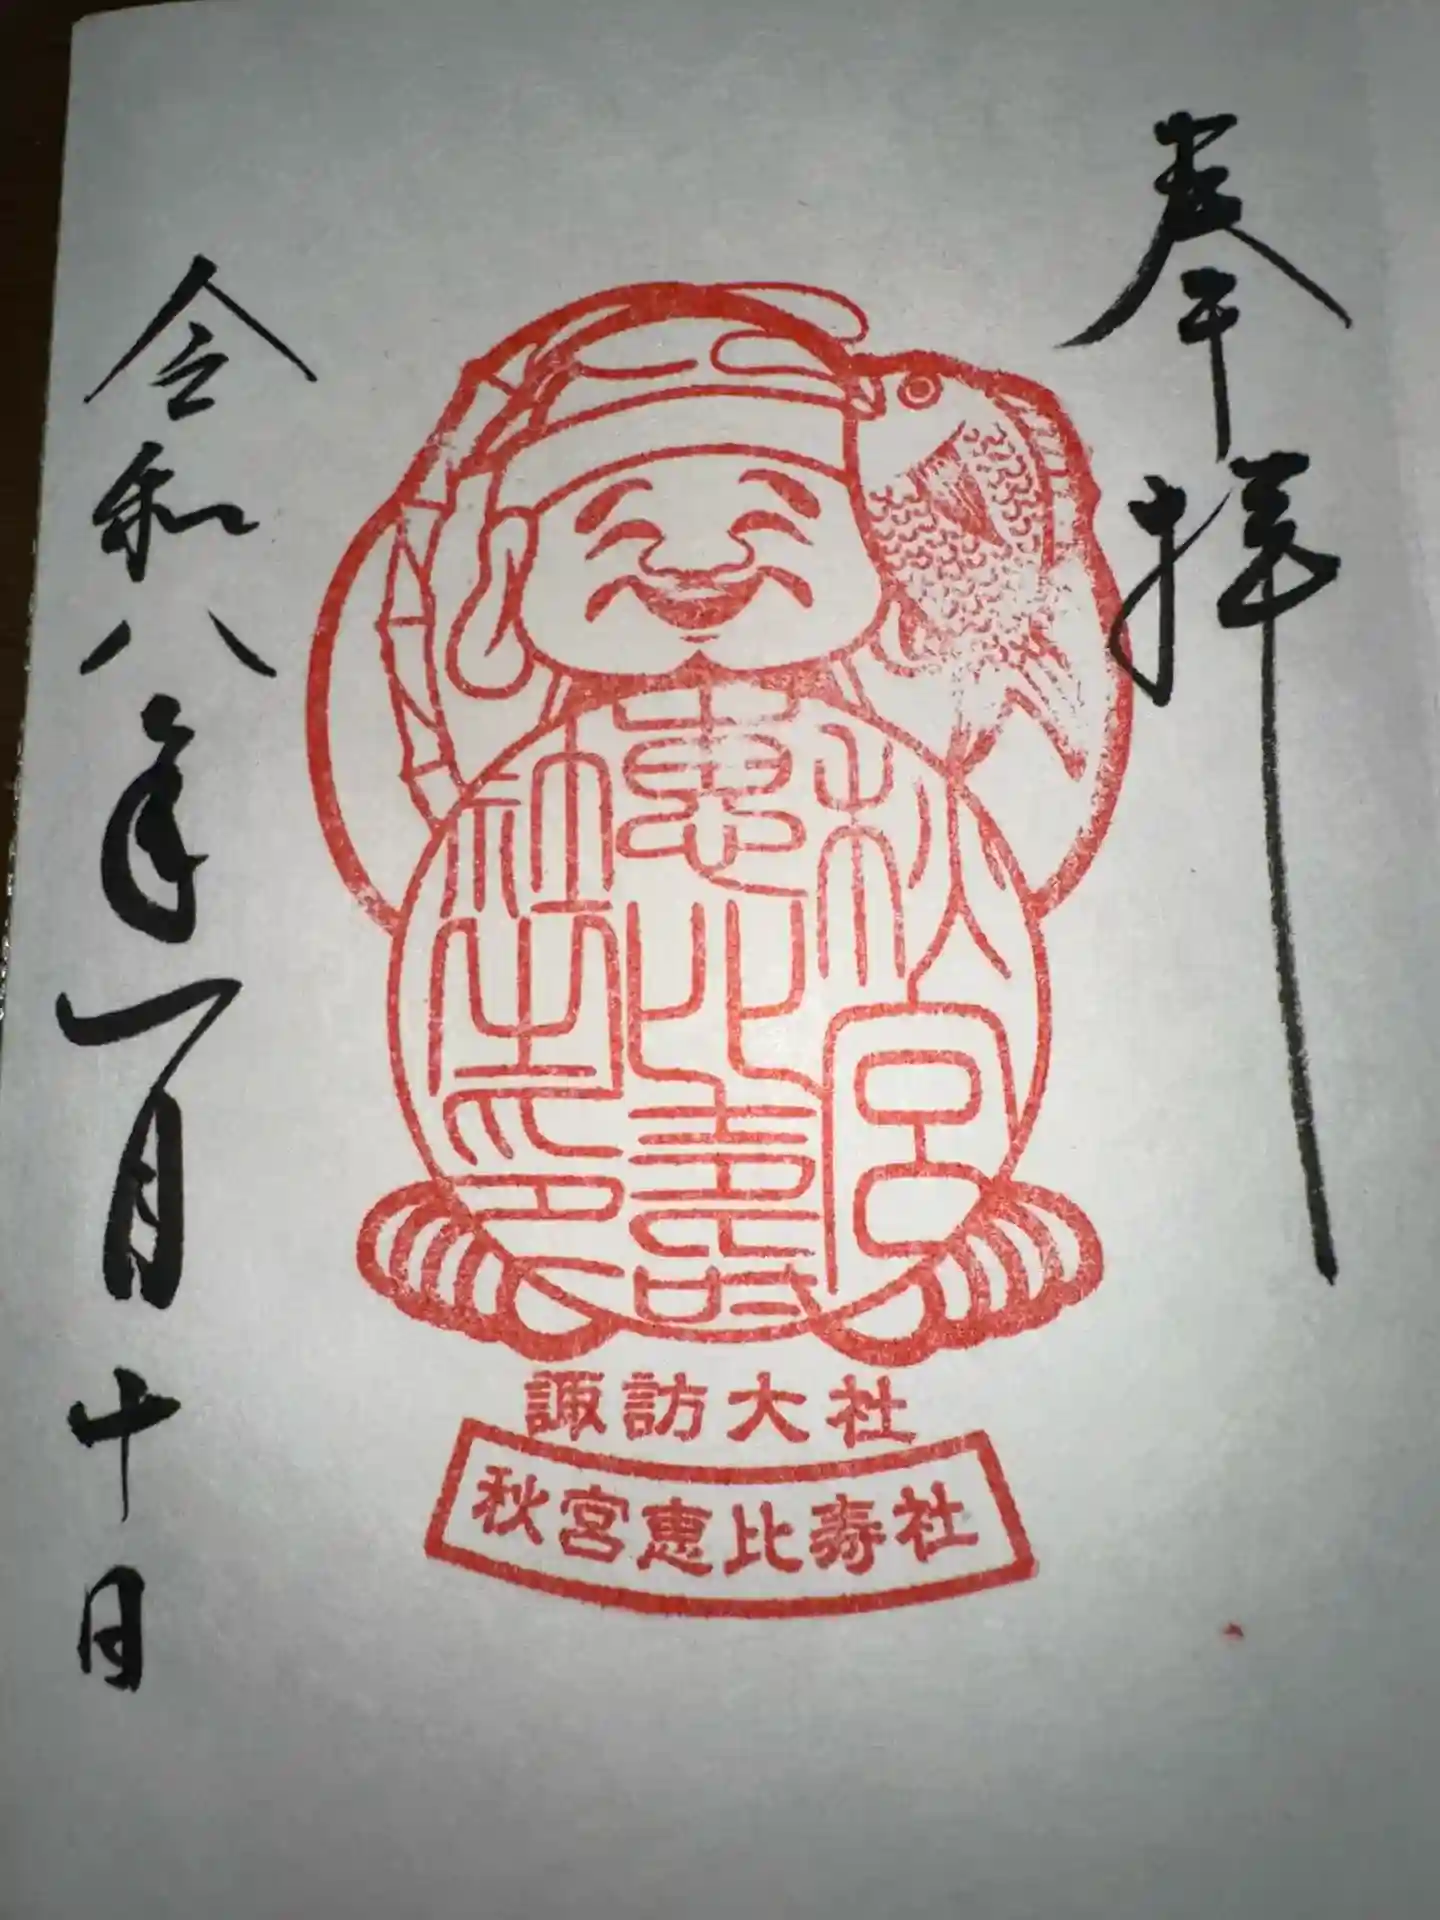 奉拝
秋宮
恵比寿
社之印
諏訪大社
秋宮恵比寿社
令和八年一月十日